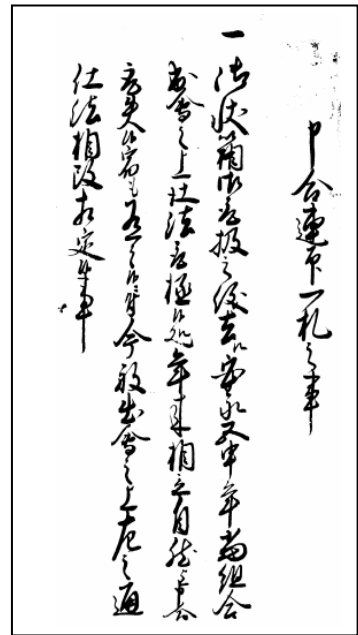 申合連印一札之事
一御状箱御取扱之儀去ル安永五申年当組合
出会之上仕法取極候処年来相立自然与
取失候宿も有之候ニ付今般出会之上左之通
仕法相改相定候事